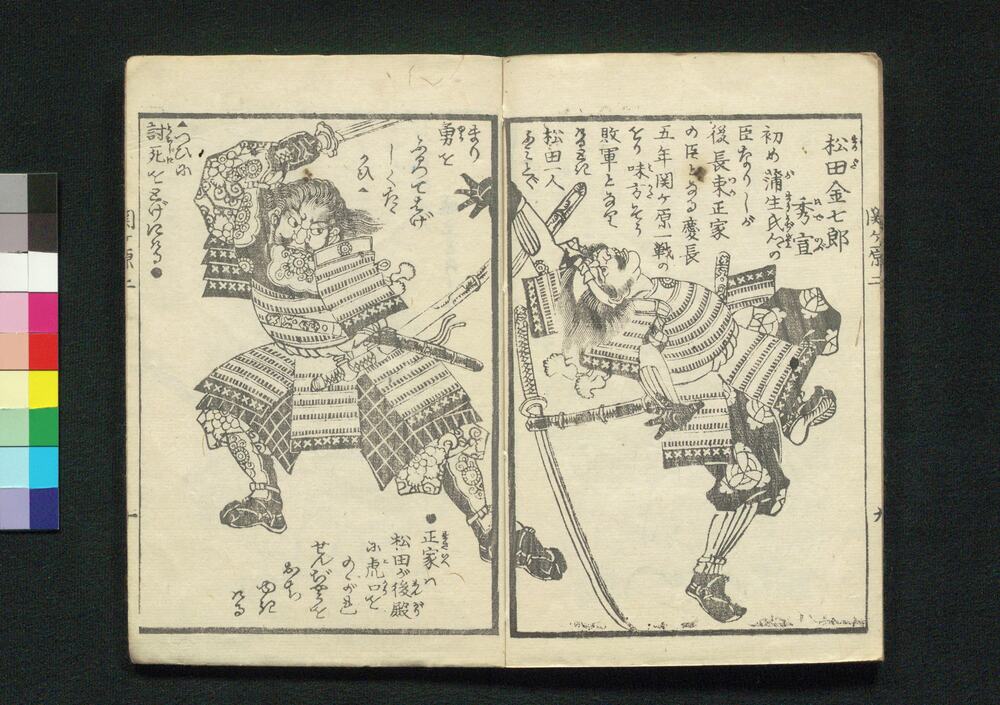 松田金七郎
秀宣
初め蒲生氏の
臣なりしが
後長束正家
の臣となる慶長
五年関ヶ原一戦の
をり味方
敗軍となり
松田一人
まり
勇を
ふるつて
しくたゝ
かひ▲
▲つひに
討死をとげける●
●正家ハ
松田が後殿
に虎口を
のがれ
せんぢやうを
おち
ゆき
ける
関ヶ原二
関ヶ原二
九